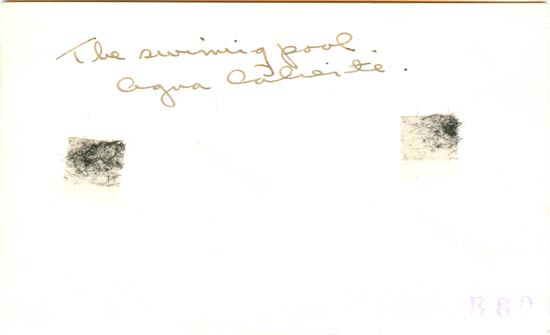 The swiming pool.
Agua Caliente.
B 8 0